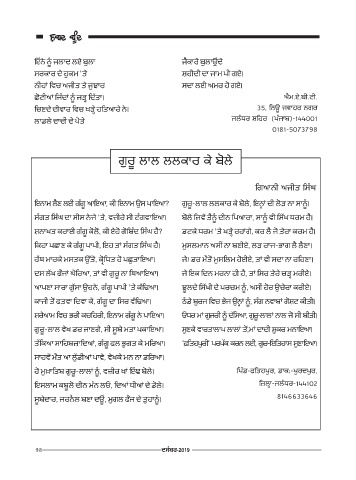 ਇੰਨੇ ਨੂੰ ਜਲਾਦ ਲਏ ਬੁਲਾ
ਸਰਕਾਰ ਦੇ ਹੁਕਮ 'ਤੇ
ਨੀਂਹਾਂ ਵਿਚ ਅਜੀਤ ਤੇ ਜੁਝਾਰ
ਛੋਟੀਆਂ ਜਿੰਦਾਂ ਨੂੰ ਜੜ੍ਹ ਦਿੱਤਾ।
ਚਿਣਦੇ ਦੀਵਾਰ ਵਿਚ ਖੜ੍ਹੇ ਹਤਿਆਰੇ ਨੇ।
ਲਾਡਲੇ ਦਾਦੀ ਦੇ ਪੋਤੇ
ਜੈਕਾਰੇ ਬੁਲਾਉਂਦੇ
ਸ਼ਹੀਦੀ ਦਾ ਜਾਮ ਪੀ ਗਏ।
ਸਦਾ ਲਈ ਅਮਰ ਹੋ ਗਏ।
ਐਮ.ਏ.ਬੀ.ਟੀ.
35, ਨਿਊ ਜਵਾਹਰ ਨਗਰ
ਜਲੰਧਰ ਸ਼ਹਿਰ (ਪੰਜਾਬ)-144001
0181-5073798
ਗੁਰੂ ਲਾਲ ਲਲਕਾਰ ਕੇ ਬੋਲੇ
ਗਿਆਨੀ ਅਜੀਤ ਸਿੰਘ
ਇਨਾਮ ਲੈਣ ਲਈ ਗੰਗੂ ਆਇਆ, ਕੀ ਇਨਾਮ ਉਸ ਪਾਇਆ?
ਸੰਗਤ ਸਿੰਘ ਦਾ ਸੀਸ ਨੇਜੇ 'ਤੇ, ਵਜ਼ੀਰੇ ਸੀ ਟੰਗਵਾਇਆ।
ਸ਼ਨਾਖਤ ਕਰਾਈ ਗੰਗੂ ਕੋਲੋਂ, ਕੀ ਏਹੋ ਗੋਬਿੰਦ ਸਿੰਘ ਹੈ?
ਕਿਹਾ ਪਛਾਣ ਕੇ ਗੰਗੂ ਪਾਪੀ, ਇਹ ਤਾਂ ਸੰਗਤ ਸਿੰਘ ਹੈ।
ਹੱਥ ਮਾਰਕੇ ਮਸਤਕ ਉੱਤੇ, ਕ੍ਰੋਧਿਤ ਹੋ ਪਛੁਤਾਇਆ।
ਦਸ ਲੱਖ ਫੌਜਾਂ ਖੱਚਿਆ, ਤਾਂ ਵੀ ਗੁਰੂ ਨਾ ਥਿਆਇਆ।
ਆਪਣਾ ਸਾਰਾ ਗੁੱਸਾ ਉਹਨੇ, ਗੰਗੂ ਪਾਪੀ 'ਤੇ ਕੱਢਿਆ।
ਕਾਜ਼ੀ ਤੋਂ ਫਤਵਾ ਦਿਵਾ ਕੇ, ਗੰਗੂ ਦਾ ਸਿਰ ਵੱਢਿਆ।
ਸਰੇਆਮ ਵਿਚ ਭਰੀ ਕਚਹਿਰੀ, ਇਨਾਮ ਗੰਗੂ ਨੇ ਪਾਇਆ।
ਗੁਰੂ-ਲਾਲ ਵੇਖ ਡਰ ਜਾਣਗੇ, ਸੀ ਸੂਬੇ ਮਤਾ ਪਕਾਇਆ।
ਤੱਕਿਆ ਸਾਹਿਬਜ਼ਾਦਿਆਂ, ਗੰਗੂ ਫਲ ਭੁਗਤ ਕੇ ਮਰਿਆ।
ਸਾਹਵੇਂ ਮੌਤ ਆ ਲੁੱਡੀਆਂ ਪਾਵੇ, ਵੇਖਕੇ ਮਨ ਨਾ ਡਰਿਆ।
ਹੋ ਮੁਖ਼ਾਤਿਬ ਗੁਰੂ-ਲਾਲਾਂ ਨੂੰ, ਵਜ਼ੀਰ ਖਾਂ ਇੰਝ ਬੋਲੇ।
ਇਸਲਾਮ ਕਬੂਲੋ ਦੀਨ ਮੰਨ ਲਓ, ਦਿਆਂ ਧੀਆਂ ਦੇ ਡੋਲੇ।
ਸੂਬੇਦਾਰ, ਜਰਨੈਲ ਬਣਾ ਦਊਂ, ਮੁਗਲ ਫੌਜ ਦੇ ਤੁਹਾਨੂੰ।
ਗੁਰੂ-ਲਾਲ ਲਲਕਾਰ ਕੇ ਬੋਲੇ, ਇਨ੍ਹਾਂ ਦੀ ਲੋੜ ਨਾ ਸਾਨੂੰ।
ਬੋਲੇ ਜਿਵੇਂ ਤੈਨੂੰ ਦੀਨ ਪਿਆਰਾ, ਸਾਨੂੰ ਵੀ ਸਿੱਖ ਧਰਮ ਹੈ।
ਡਟਕੇ ਧਰਮ 'ਤੇ ਖੜ੍ਹੇ ਰਹਾਂਗੇ, ਕਰ ਲੈ ਜੋ ਤੇਰਾ ਕਰਮ ਹੈ।
ਮੁਸਲਮਾਨ ਅਸੀਂ ਨਾ ਬਣੀਏ, ਲੜ ਰਾਜ-ਭਾਗ ਲੈ ਲੈਣਾ।
ਜੇ ਡਰ ਮੌਤੋਂ ਮੁਸਲਿਮ ਹੋਈਏ, ਤਾਂ ਵੀ ਸਦਾ ਨਾ ਰਹਿਣਾ।
ਜੇ ਇਕ ਦਿਨ ਮਰਨਾ ਹੀ ਹੈ, ਤਾਂ ਸਿਰ ਤੇਰੇ ਚੜ੍ਹ ਮਰੀਏ।
ਝੂਲਦੇ ਸਿੱਖੀ ਦੇ ਪਰਚਮ ਨੂੰ, ਅਸੀਂ ਹੋਰ ਉਚੇਰਾ ਕਰੀਏ।
ਠੰਡੇ ਬੁਰਜ ਵਿਚ ਭੇਜ ਉਨ੍ਹਾਂ ਨੂੰ, ਸੰਗ ਨਵਾਬਾਂ ਗੋਸ਼ਟ ਕੀਤੀ।
ਓਧਰ ਮਾਂ ਗੁਜਰੀ ਨੂੰ ਦੱਸਿਆ, ਗੁਰੂ-ਲਾਲਾਂ ਨਾਲ ਜੋ ਸੀ ਬੀਤੀ।
ਸੁਣਕੇ ਵਾਰਤਾਲਾਪ ਲਾਲਾਂ ਤੋਂ,ਮਾਂ ਦਾਦੀ ਸ਼ੁਕਰ ਮਨਾਇਆ।
'ਫਤਿਹਪੁਰੀ' ਪਰਪੱਕ ਕਰਨ ਲਈ, ਗੁਰ-ਇਤਿਹਾਸ ਸੁਣਾਇਆ।
ਪਿੰਡ-ਫਤਿਹਪੁਰ, ਡਾਕ:-ਪੂਰਦਪੁਰ,
ਜ਼ਿਲ੍ਹਾ-ਜਲੰਧਰ-144102
8146633646
ਦਸੰਬਰ-2019